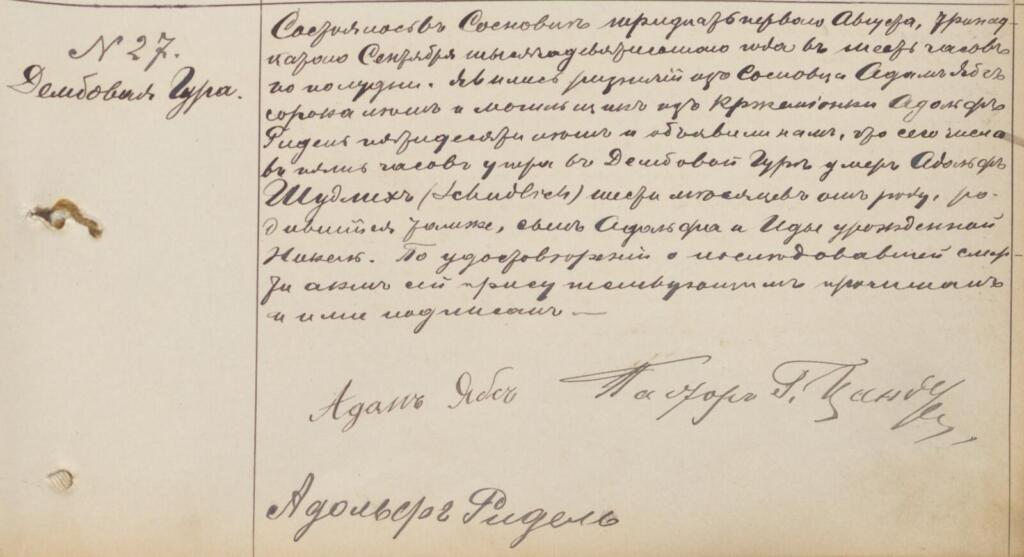 N 27.
Дембовая Гура.
Состоялось въ Сосновицѣ тридцать перваго Августа, тринад-
цатаго Сентября тысяча девятисотаго года въ шесть часовъ
по полудни. Явились резничій изъ Сосновца Адамъ Ябсъ
сорока лѣтъ и могильщикъ изъ Кржемiонки Адольфъ
Ридель пятидесяти лѣтъ и объявили намъ, что сего числа
въ пять часовъ утра въ Дембовой Гурѣ умеръ Адольфъ
Шудлихъ (Schudlich) шести мѣсяцевъ отъ роду, ро-
дившійся тамже, сынъ Адольфа и Иды урожденной
По удостовѣреніи о послѣдовавшей смер-
ти актъ сей присутствующимъ прочитанъ
и ими подписанъ —
Адамъ Ябсъ Пасторъ Г.
Адольфъ Ридель